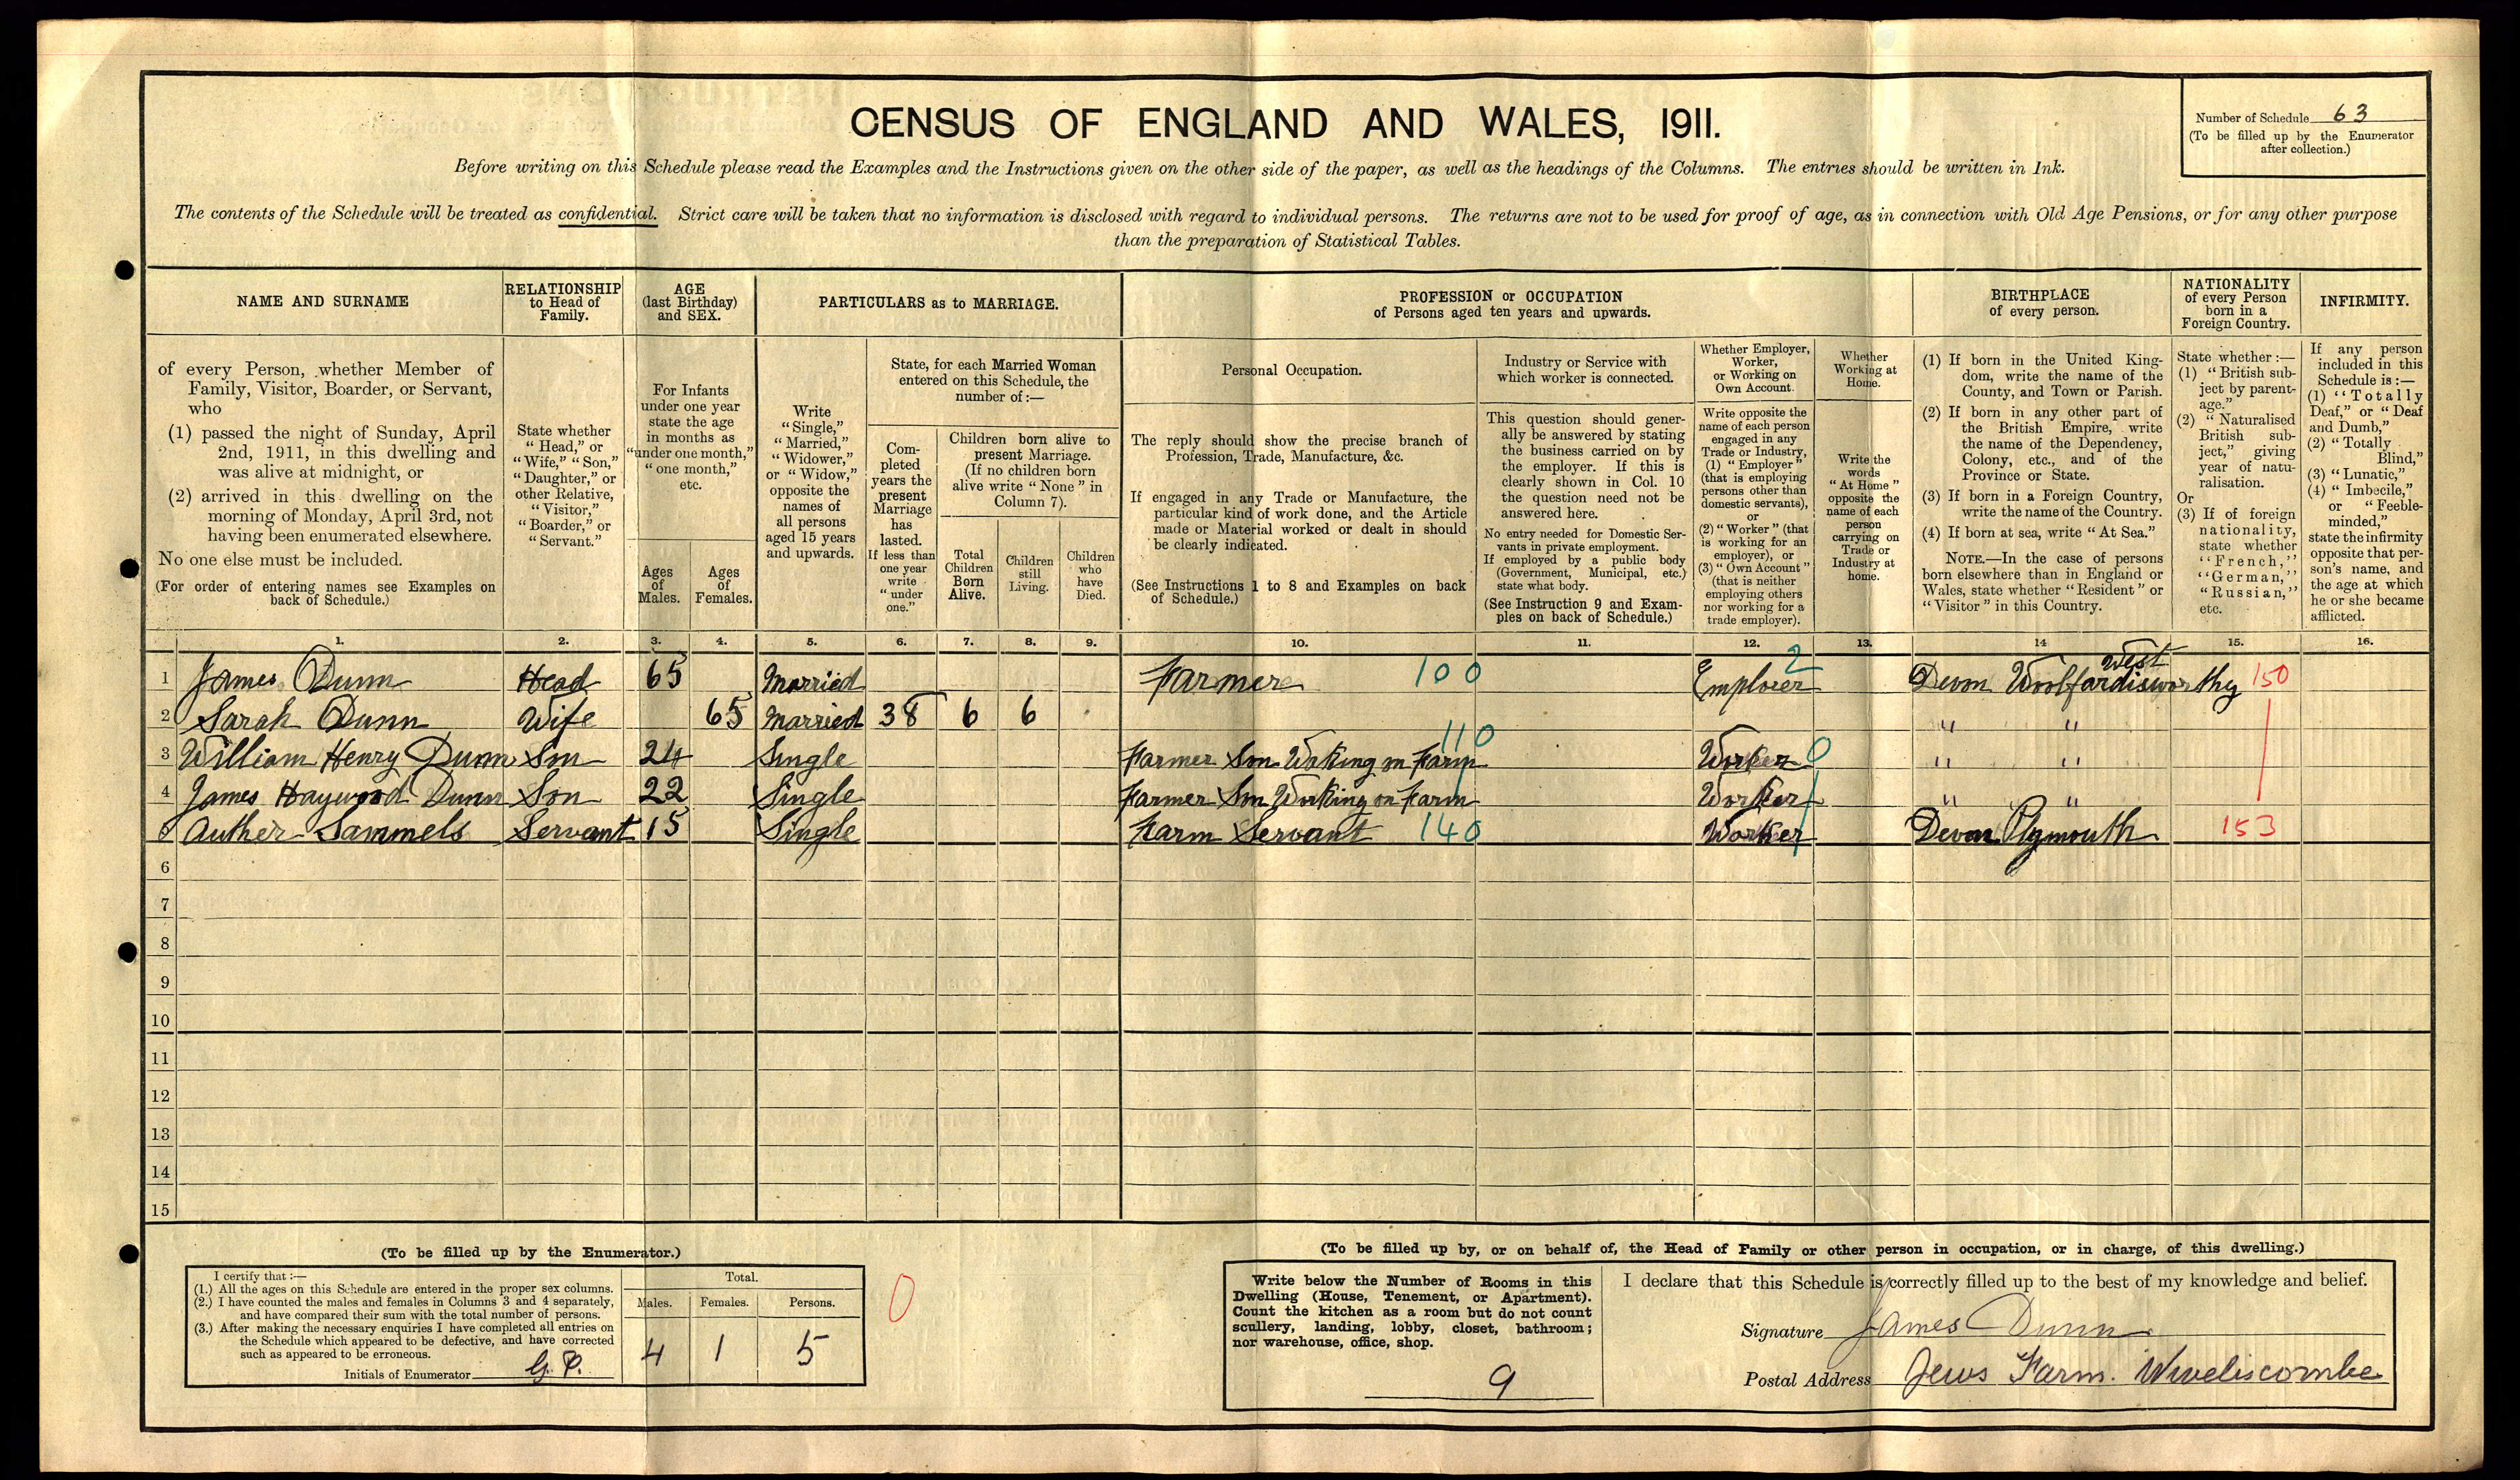 CENSUS OF ENGLAND AND WALES, 1911.
Number of Schedule 63
(To be filled up by the Enumerator
after collection.)
Before writing on this Schedule please read the Examples and the Instructions given on the other side of the paper, as well as the headings of the Columns. The entries should be written in Ink.
The contents of the Schedule will be treated as confidential. Strict care will be taken that no information is disclosed with regard to individual persons. The returns are not to be used for proof of age, as in connection with Old Age Pensions, or for any other purpose
than the preparation of Statistical Tables.
NAME AND SURNAME
of every Person, whether Member of
Family, Visitor, Boarder, or Servant,
who
(1) passed the night of Sunday, April
2nd, 1911, in this dwelling and
was alive at midnight, or
(2) arrived in this dwelling on the
morning of Monday, April 3rd, not
having been enumerated elsewhere.
No one else must be included.
(For order of entering names see Examples on
back of Schedule.)
RELATIONSHIP
to Head of
Family.
State whether
"Head," or
"Wife," "Son,"
"Daughter," or
other Relative,
"Visitor,"
"Boarder," or
"Servant."
AGE
(last Birthday)
and SEX.
For Infants
under one year
state the age
in months as
"under one month,"
"one month,"
etc.
Ages
of
Males.
Ages
of
Females.
PARTICULARS as to MARRIAGE.
Write
"Single,"
"Married,"
"Widower,"
or "Widow,"
opposite the
names of
all persons
aged 15 years
and upwards.
State, for each Married Woman
entered on this Schedule, the
number of:—
Com-
pleted
years the
present
Marriage
has
lasted.
If less than
one year
write
"under
one."
Children born alive to
present Marriage.
(If no children born
alive write "None" in
Column 7).
Total
Children
Born
Alive.
Children
still
Living.
Children
who
have
Died.
PROFESSION or OCCUPATION
of Persons aged ten years and upwards.
Personal Occupation.
The reply should show the precise branch of
Profession, Trade, Manufacture, &c.
If engaged in any Trade or Manufacture, the
particular kind of work done, and the Article
made or Material worked or dealt in should
be clearly indicated.
(See Instructions 1 to 8 and Examples on back
of Schedule.)
Industry or Service with
which worker is connected.
This question should gener-
ally be answered by stating
the business carried on by
the employer. If this is
clearly shown in Col. 10
the question need not be
answered here.
No entry needed for Domestic Ser-
vants in private employment.
If employed by a public body
(Government, Municipal, etc.)
state what body.
(See Instruction 9 and Exam-
ples on back of Schedule.)
Whether Employer,
Worker,
or Working on
Own Account.
Write opposite the
name of each person
engaged in any
Trade or Industry,
(1) "Employer"
(that is employing
persons other than
domestic servants),
or
(2) "Worker" (that
is working for an
employer), or
(3) "Own Account"
(that is neither
employing others
nor working for a
trade employer).
Whether
Working at
Home.
Write the
words
"At Home"
opposite the
name of each
person
carrying on
Trade or
Industry at
home.
BIRTHPLACE
of every person.
(1) If born in the United King-
dom, write the name of the
County, and Town or Parish.
(2) If born in any other part of
the British Empire, write
the name of the Dependency,
Colony, etc., and of the
Province or State.
(3) If born in a Foreign Country,
write the name of the Country.
(4) If born at sea, write "At Sea."
NOTE.—In the case of persons
born elsewhere than in England or
Wales, state whether "Resident" or
"Visitor" in this Country.
NATIONALITY
of every Person
born in a
Foreign Country.
State whether:—
(1) "British sub-
ject by parent-
age."
(2) "Naturalised
British sub-
ject," giving
year of natu-
ralisation.
Or
(3) If of foreign
nationality,
state whether
"French,"
"German,"
"Russian,"
etc.
INFIRMITY.
If any person
included in this
Schedule is:—
(1) "Totally
Deaf," or "Deaf
and Dumb,"
(2) "Totally
Blind,"
(3) "Lunatic,"
(4) "Imbecile,"
or "Feeble-
minded,"
state the infirmity
opposite that per-
son's name, and
the age at which
he or she became
afflicted.
1. 2. 3. 4. 5. 6. 7. 8. 9. 10. 11. 12. 13. 14 15. 16.
1 James Dunn Head 65 Married Farmer 100 Employer 2 Devon West Woolfardisworthy 150
2 Sarah Dunn Wife 65 Married 38 6 6 " "
3 William Henry Dunn Son 24 Single Farmer Son Woking on Farm 110 Worker 0 " "
4 James Haywood Dunn Son 22 Single Farmer Son Working on Farm Worker " "
5 Auther Sammels Servant 15 Single Farm Servant 140 Worker Devon Plymouth 153
6
7
8
9
10
11
12
13
14
15
(To be filled up by the Enumerator.)
I certify that:—
(1.) All the ages on this Schedule are entered in the proper sex columns.
(2.) I have counted the males and females in Columns 3 and 4 separately,
and have compared their sum with the total number of persons.
(3.) After making the necessary enquiries I have completed all entries on
the Schedule which appeared to be defective, and have corrected
such as appeared to be erroneous.
Initials of Enumerator G. P.
Total.
Males. Females. Persons.
4 1 5
0
(To be filled up by, or on behalf of, the Head of Family or other person in occupation, or in charge, of this dwelling.)
Write below the Number of Rooms in this
Dwelling (House, Tenement, or Apartment).
Count the kitchen as a room but do not count
scullery, landing, lobby, closet, bathroom;
nor warehouse, office, shop.
9
I declare that this Schedule is correctly filled up to the best of my knowledge and belief.
Signature James Dunn
Postal Address Jews Farm. Wiveliscombe